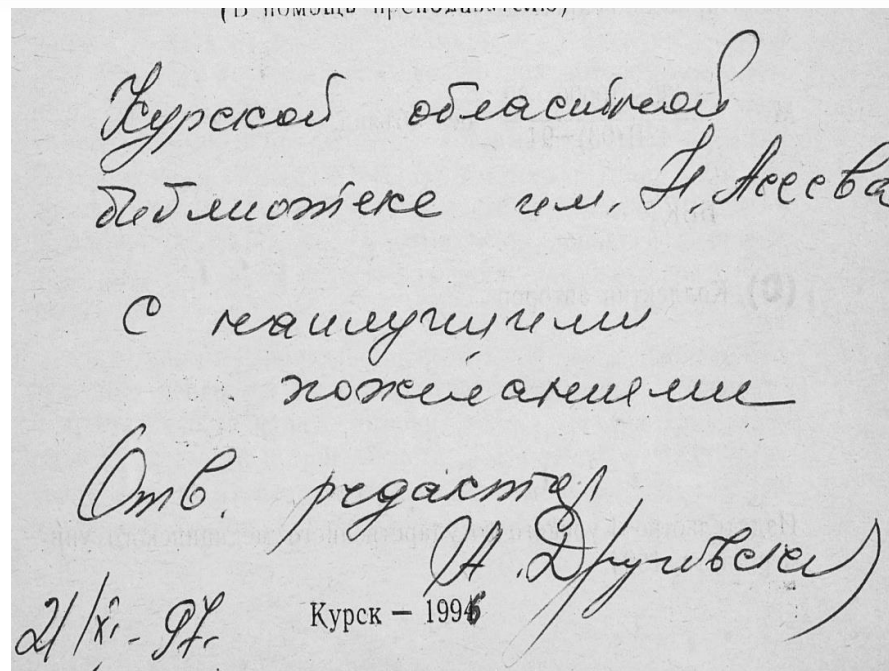 (В помощь преподавателю)
Курской областной
библиотеке им. Н. Асеева
с наилучшими
пожеланиями
Отв. редактор
21/XI - 97.
Курск — 1996